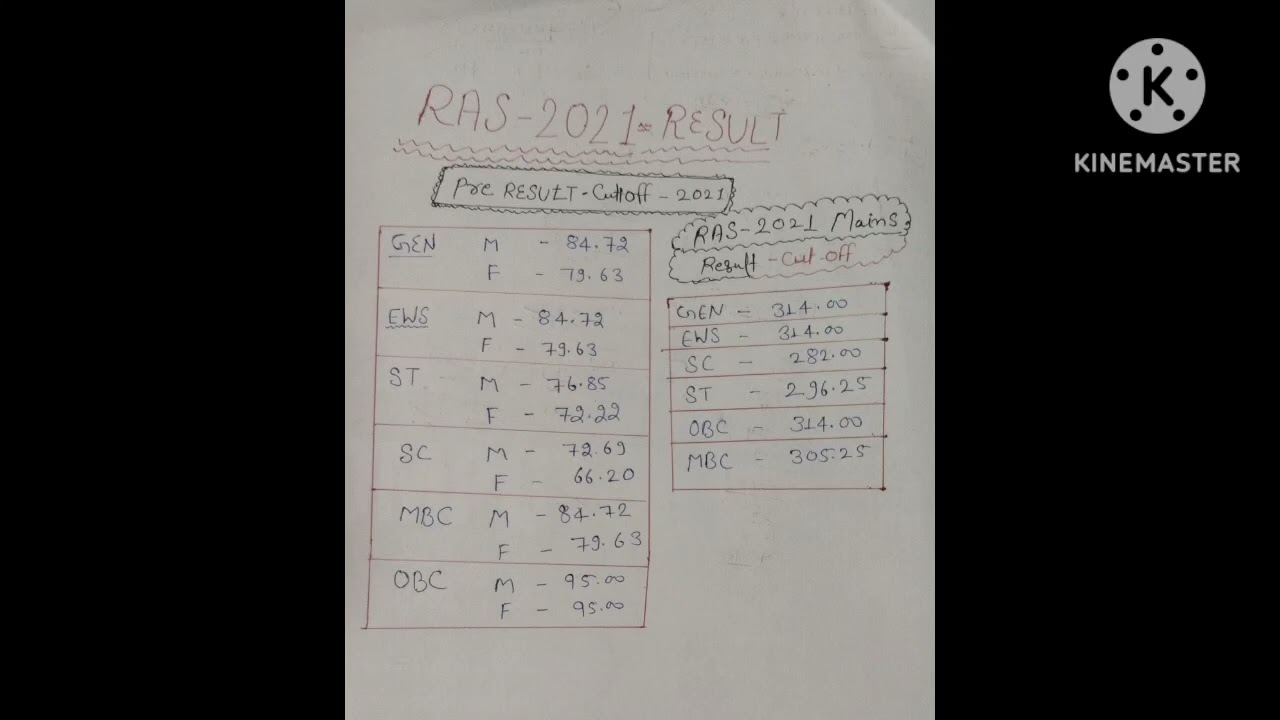 RAS-2021 RESULT
Pre RESULT-Cuttoff-2021
GEN M - 84.72
F - 79.63
EWS M - 84.72
F - 79.63
ST M - 76.85
F - 72.22
SC M - 72.69
F - 66.20
MBC M - 84.72
F - 79.63
OBC M - 95.00
F - 95.00
RAS-2021 Mains
Result -Cut-Off
GEN - 314.00
EWS - 314.00
SC - 282.00
ST - 296.25
OBC - 314.00
MBC - 305.25
K
KINEMASTER